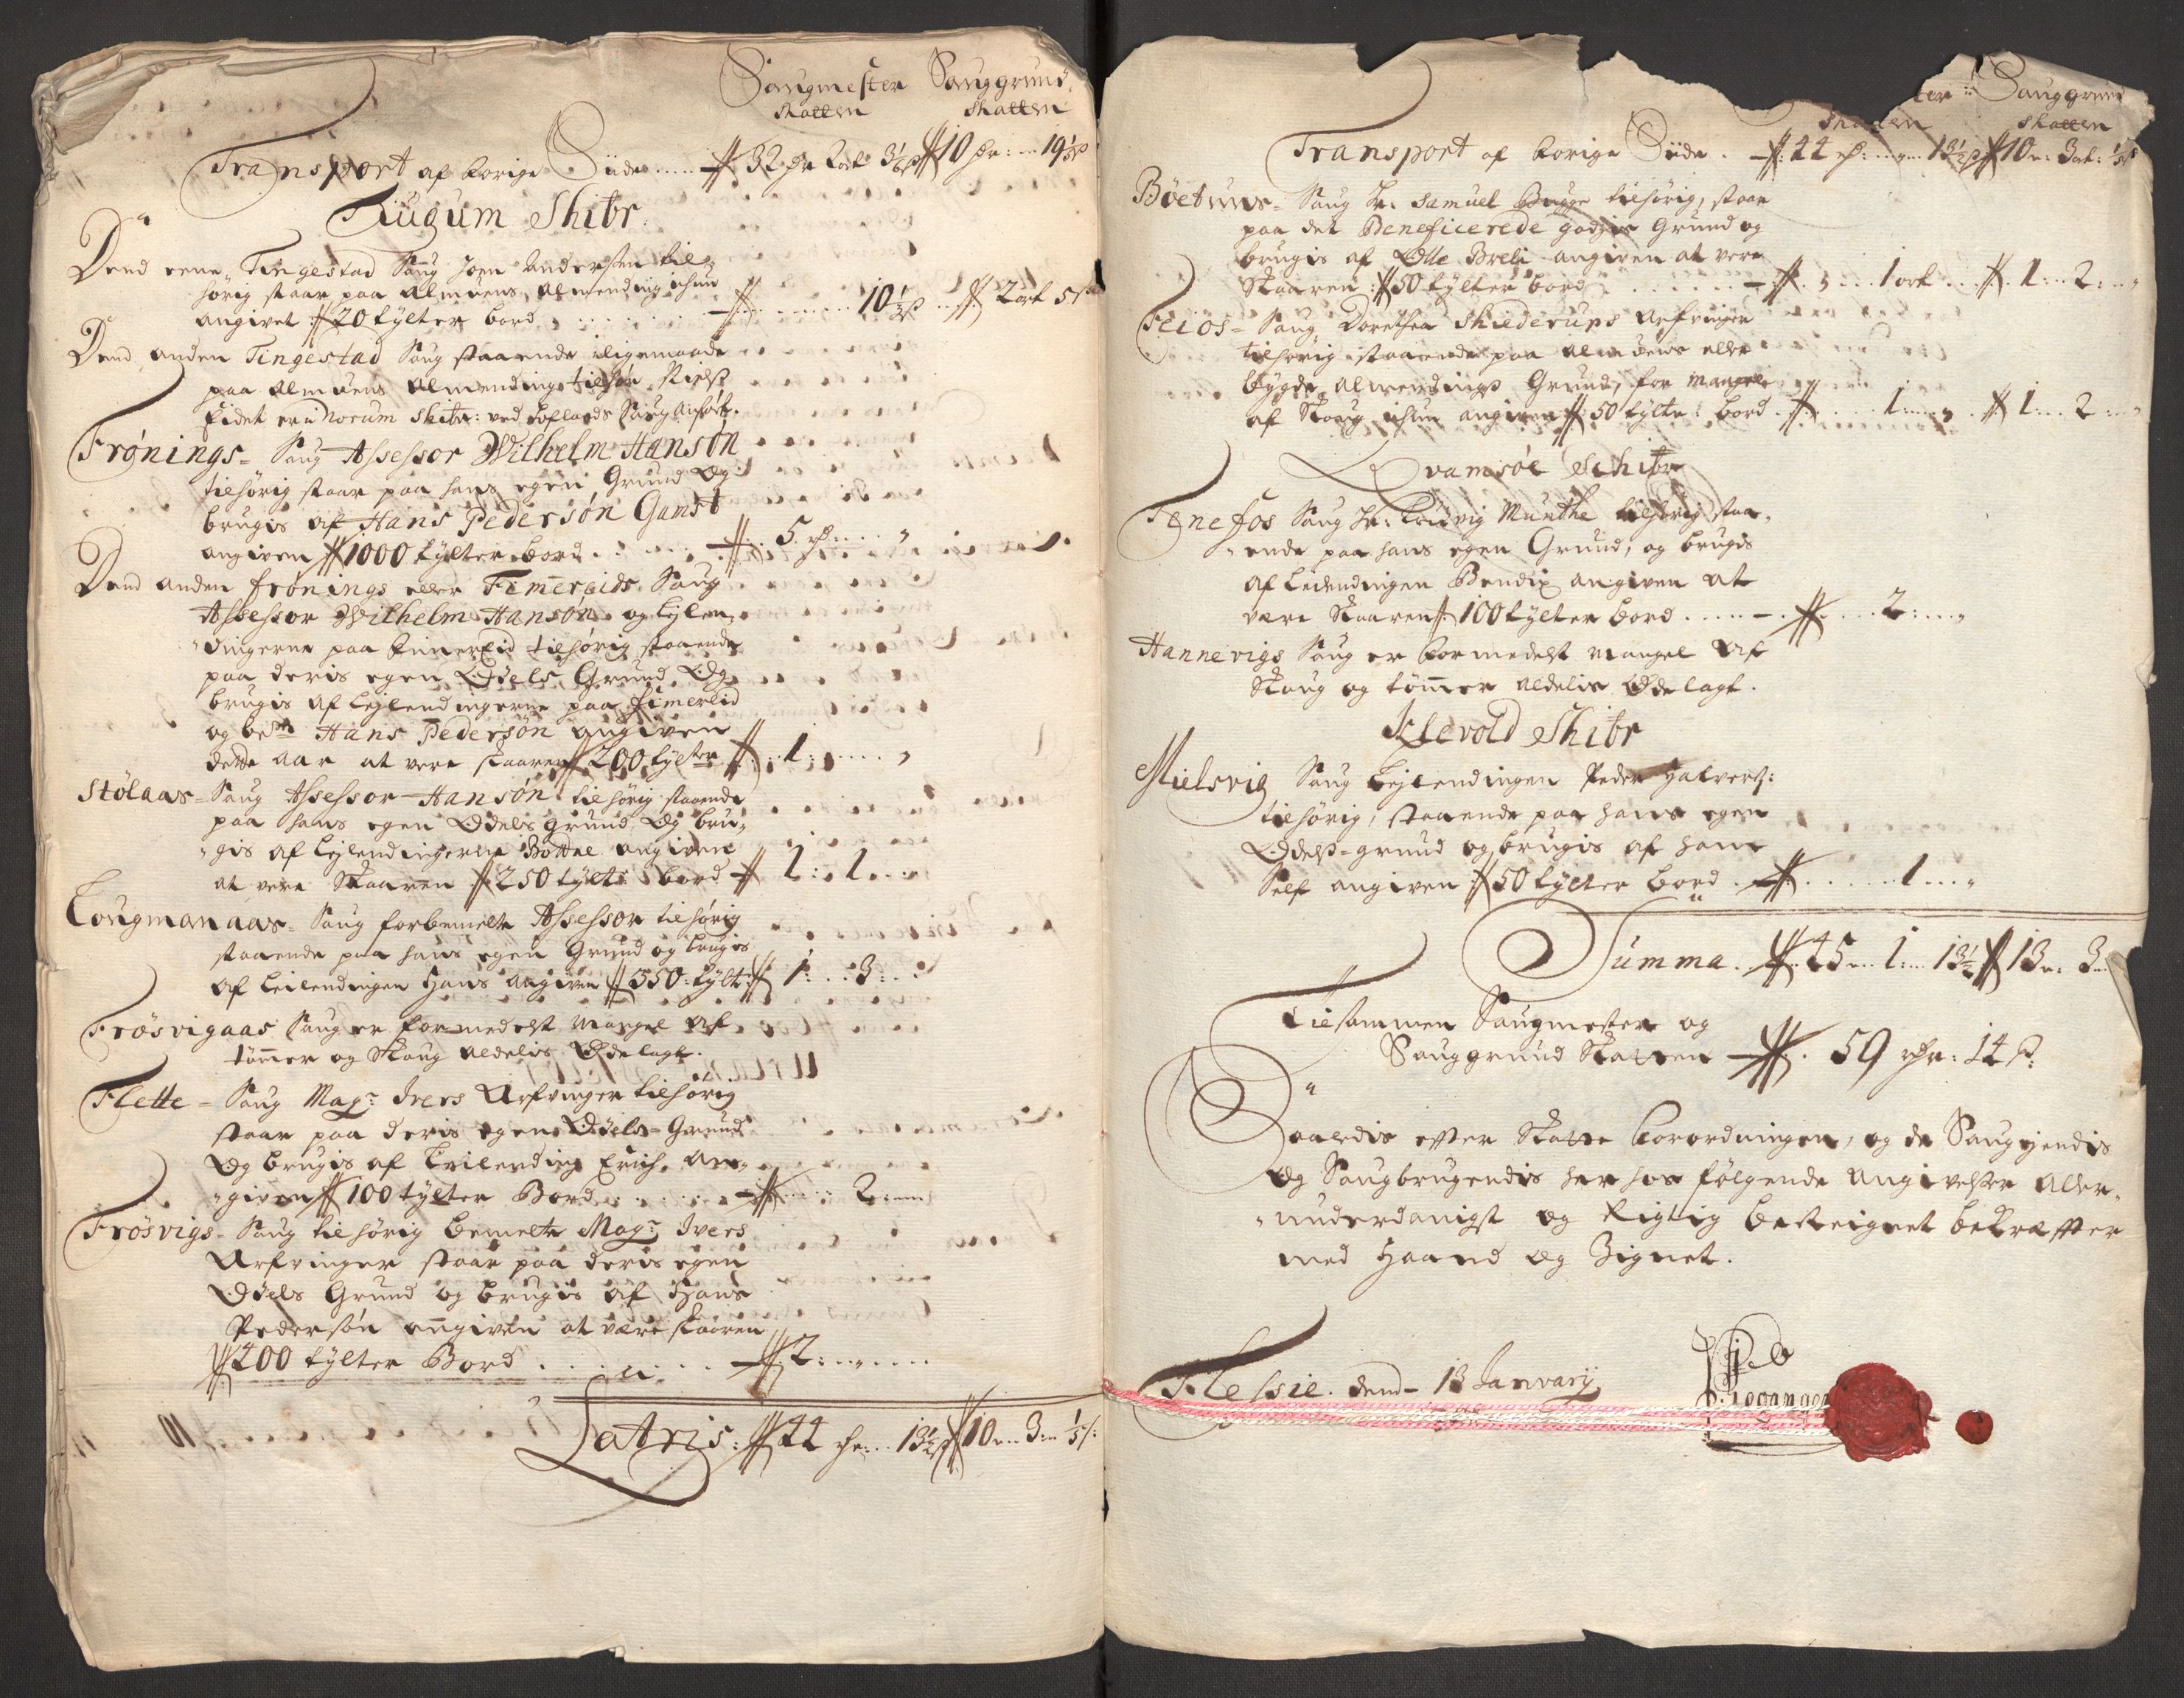 Saugmester Sauggrund
skatten skatten
Transport af forige Siide 32 10 19½
Tiugum Skibr
Dend eene Tingestad Saug Joen Andersen til
hørig staar paa Almuens Almending ichun
angivet 20 tylter bord 10½ 2 ort 5
Dend anden Tingestad Saug staaende iligemaade
paa Almuens Almendings
er i Norum Skibr: ved Saug anført.
Frønings- Saug Assessor Wilhelm Hansøn
tilhørig staar paa hans egen Grund Og
brugis af Hans Pedersøn Gamst
angiven 1000 tylter bord 5
Dend anden frønings eller Fimreids Saug
Assessor Wilhelm Hansøn og Lejlen-
dingerne paa tilhørig staaende
paa deris egen Odels Grund Og
brugis af Lejlendingerne paa fimerlid
og bete Hans Pedersøn angiven
dette aar at vere skaaren 200 tylter 1
Stølaas- Saug Assessor Hansøn tilhørig staaende
paa hans egen Odels grund Og bru-
gis af Lejlendingerne angiven
at vere Skaaren 250 tylt: bord 1: 1
Lougmanaas- Saug forbemelte Assessor tilhørig
staaende paa hans egen Grund og brugis
af Leilendingen Hans angiven 350 tylt: 1: 3:
Frøsvigaas Saug er formedelst Mangel af
tømmer og Skoug aldelis Ødelagt.
Flette- Saug Magr Ivers Arfvinger tilhørig
staar paa deris egen Odels Grund
Og brugis af Leilending Erich an-
given 100 tylter Bord 2:
Frøsvigs- Saug tilhørig bemelte Magr Ivers
Arfvinger staar paa deris egen
Odels Grund og brugis af Hans
Pedersøn angiven at vere skaaren
400 tylter Bord 2:
Latris: 44 13½ 10 3
Sauggrund
skatten skatten
Transport af forige Siide. 44 13½ 10 3
Bøetuns- Saug Hr. Samuel Bugge tilhørig, staar
paa det Beneficerede godzis Grund og
brugis af Olle angiven at vere
Skaaren 50 tylter bord 1 ort 1: 2:
Feios- Saug Dorethea Skiederups Arfvinger
tilhørig staaende paa Almuens eller
bygde Almendings Grund, for mangel
af Skoug ichun angiven 50 tylter bord 1 1: 2:
Qvamsøe Schibr
Fenefos Saug Hr. Ludvig Munthe tilhørig staa-
ende paa hans egen Grund, og brugis
af Leilendingen Bendix angiven at
vere Skaaren 100 tylter bord 2:
Hannevigs Saug er formedelst mangel af
Skoug og tømmer aldelis Ødelagt.
Klevold Skibr
Mielsvig Saug Lejlendingen Peder Halvers:
tilhørig, staaende paa hans egen
Odels-grund og brugis af ham
Self angiven 50 tylter bord 1
Summa. 45 1: 13½ 13 3
Tilsammen Saugmester og
Sauggrund Skatten 59 14
Saaledis efter Skatte forordningen, og de Saugejendis
Og Saugbrugendis her hos følgende angivelser Aller-
underdanigst og Rigtig bekræfter
med Haand og Zignet.
Flessie. dend 13 January